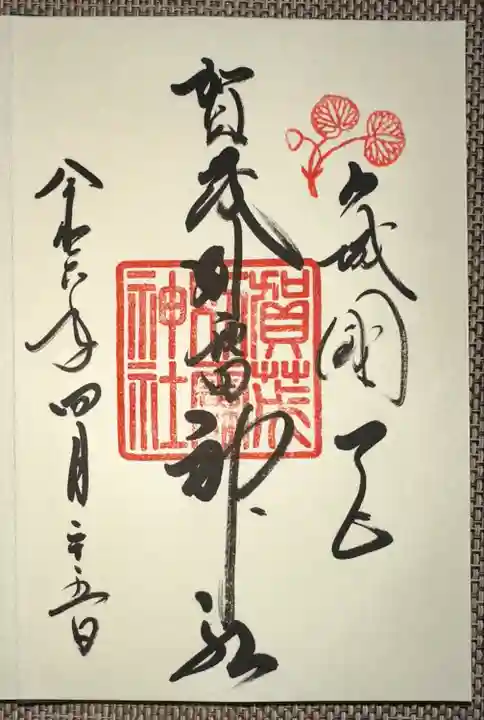 山城國一宮
賀茂別雷神社
賀茂別雷神社
令和六年四月二十五日